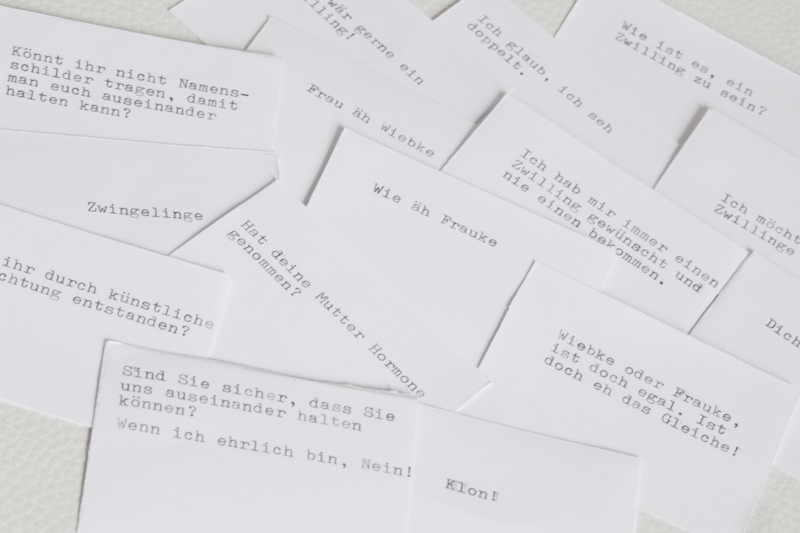 Könnt ihr nicht Namens-
schilder tragen, damit
man euch auseinander
halten kann?
wär gerne ein
illing!
Ich glaub, ich seh
doppelt.
Wie ist es, ein
Zwilling zu sein?
Frau äh Wiebke
Zwingelinge
Wie äh Frauke
Ich hab mir immer einen
Zwilling gewünscht und
nie einen bekommen.
Ich möcht
Zwillinge
Hat deine Mutter Hormone
genommen?
ihr durch künstliche
chtung entstanden?
Wiebke oder Frauke,
ist doch egal. Ist
doch eh das Gleiche!
Dich
Sind Sie sicher, dass Sie
uns auseinander halten
können?
Wenn ich ehrlich bin, Nein!
Klon!